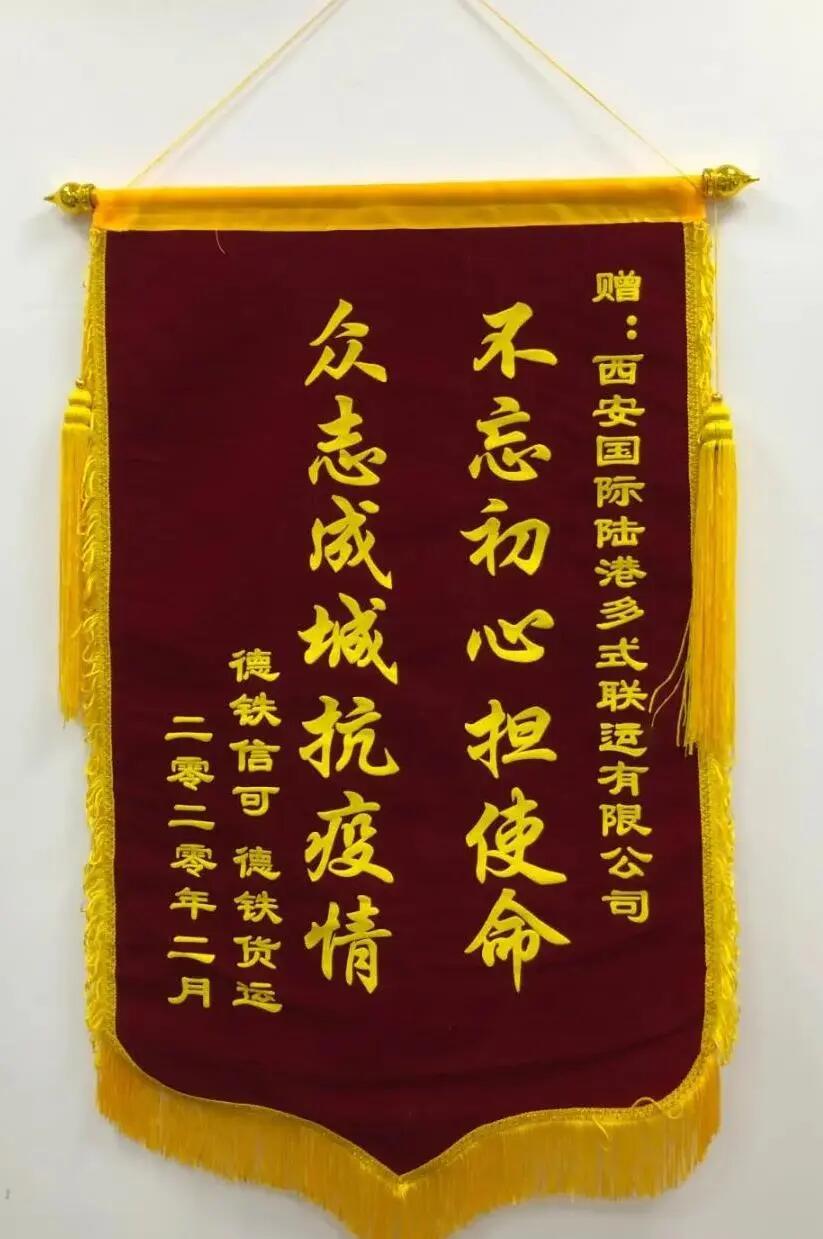 赠：西安国际陆港多式联运有限公司
不忘初心担使命
众志成城抗疫情
德铁信可 德铁货运
二零二零年二月